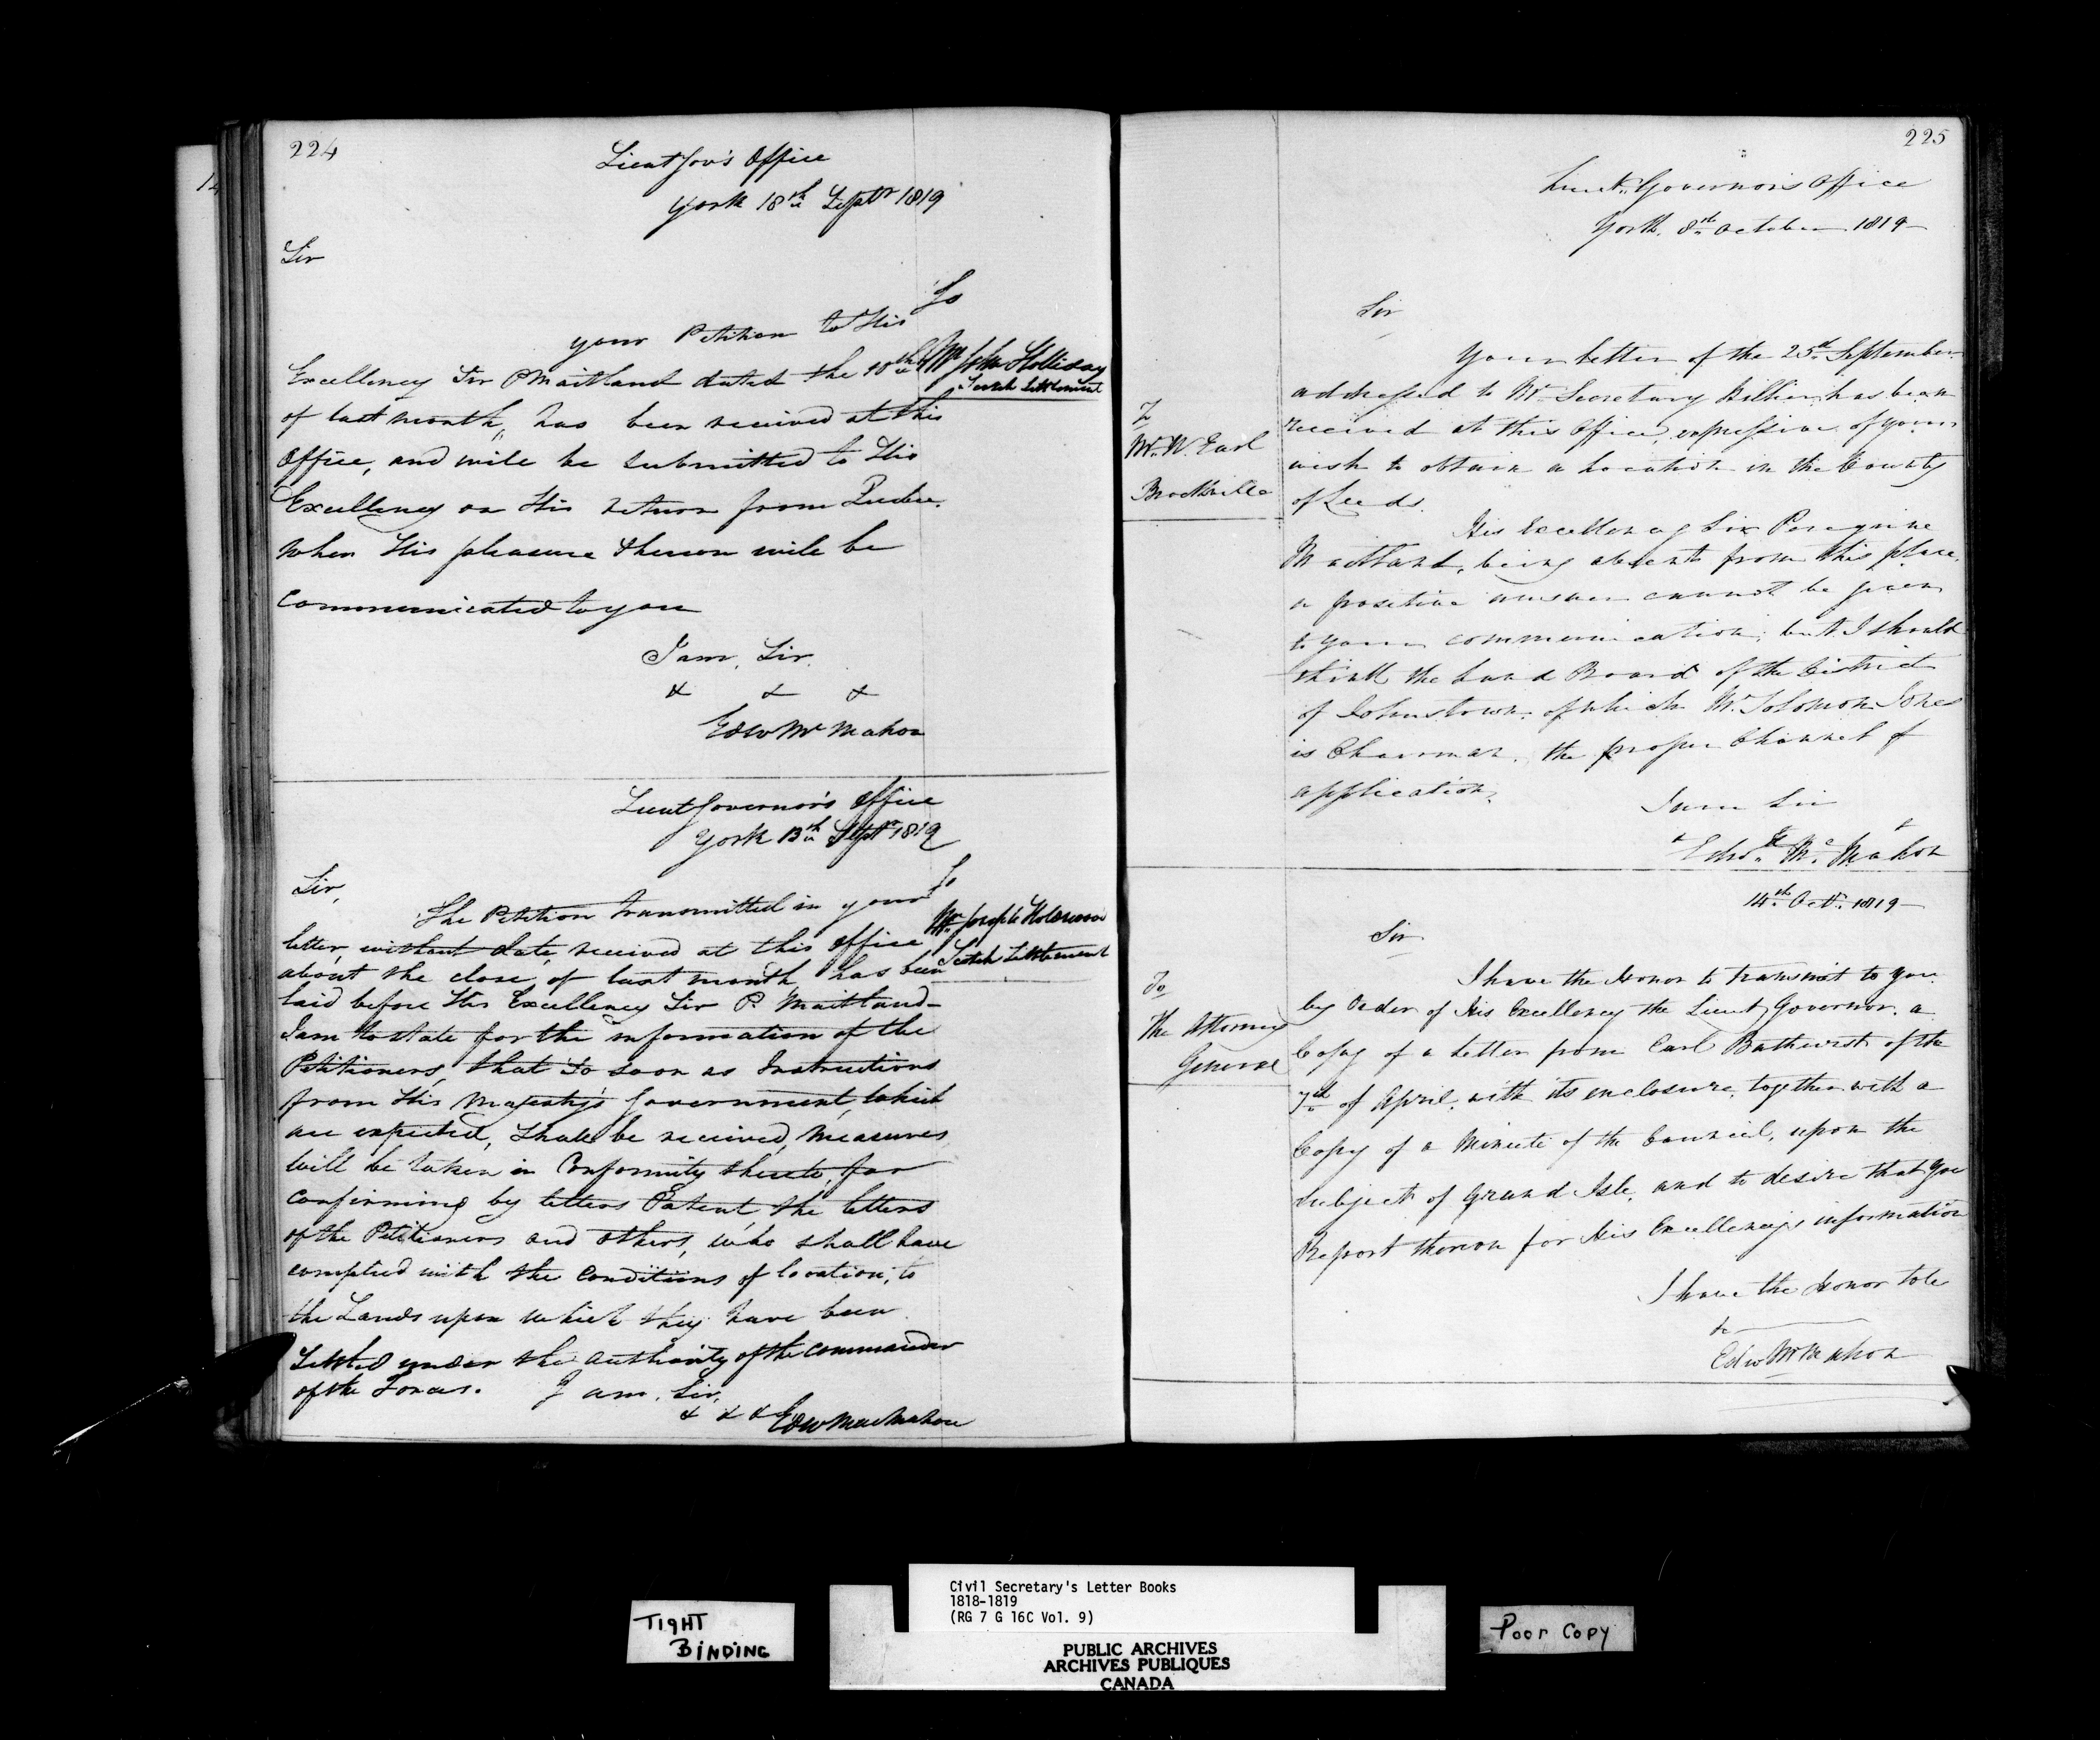 224
Lieut Gov's Office
York 18th Septr 1819
Sir
To
Mr John Holliday
Scotch Settlement
your Petition to His
Excellency Sir P Maitland dated the 10th
of last month, has been received at this
Office, and will be submitted to His
Excellency on His return from Quebec.
When His pleasure thereon will be
Communicated to you
I am, Sir.
& & &
Edw Mc Mahon
Lieut Governor's Office
York 13th Septr 1819
Sir,
To
Mr Joseph
Scotch Settlement
The Petition transmitted in your
letter, without date, received at this Office
about the close of last month, has been
laid before His Excellency Sir P. Maitland—
I am to state for the information of the
Petitioners, that so soon as Instructions
from His Majesty's Government, which
are expected, shall be received, Measures
will be taken in Conformity thereto, for
Confirming by letters Patent, the letters
of the Petitioners and others, who shall have
complied with the Conditions of location, to
the Lands upon which they have been
Settled under the Authority of the Commander
of the Forces. I am, Sir,
& & & Edw MacMahon
225
Lieut. Governor's Office
York. 8th October 1819
Sir
To
Mr. W. Earl
Brockville
Your letter of the 25th September
addressed to Mr Secretary Hillier, has been
received at this Office, expressive of your
wish to obtain a Location in the County
of Leeds.
His Excellency Sir Peregrine
Maitland, being absent from this place,
a positive answer cannot be given
to your communication; but I should
think the Land Board of the District
of Johnstown, of which Mr. Solomon Jones
is Chairman, the proper Channel of
application.
I am Sir
& &
Edwd. Mc. Mahon
14th Octr. 1819
Sir
To
The Attorney
General
I have the Honor to transmit to you
by Order of His Excellency the Lieut Governor, a
Copy of a Letter from Earl Bathurst of the
7th of April, with its enclosure, together with a
Copy of a Minute of the Council, upon the
subject of Grand Isle, and to desire that you
Report thereon for His Excellency's information
I have the Honor to be
&c
Edw McMahon
TIGHT
BINDING
Civil Secretary's Letter Books
1818-1819
(RG 7 G 16C Vol. 9)
PUBLIC ARCHIVES
ARCHIVES PUBLIQUES
CANADA
Poor Copy